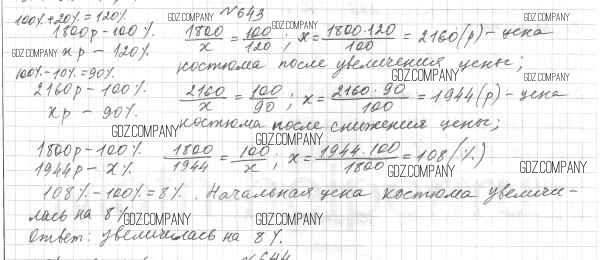 №643
100%+20%=120%
1800р-100%. 1800/x = 100/120; x = 1800·120/100 = 2160(р)-цена
xр-120%. костюма после увеличения цены;
100%-10%=90%
2160р-100%. 2160/x = 100/90; x = 2160·90/100 = 1944(р)-цена
xр-90%. костюма после снижения цены;
1800р-100%. 1800/1944 = 100/x; x = 1944·100/1800 = 108(%)
1944р-x%.
108%-100%=8%. Начальная цена костюма увеличи-
лась на 8%.
Ответ: увеличилась на 8%.
№644
GDZ.COMPANY
GDZ.COMPANY
GDZ.COMPANY
GDZ.COMPANY
GDZ.COMPANY
GDZ.COMPANY
GDZ.COMPANY
GDZ.COMPANY
GDZ.COMPANY
GDZ.COMPANY
GDZ.COMPANY
GDZ.COMPANY
GDZ.COMPANY